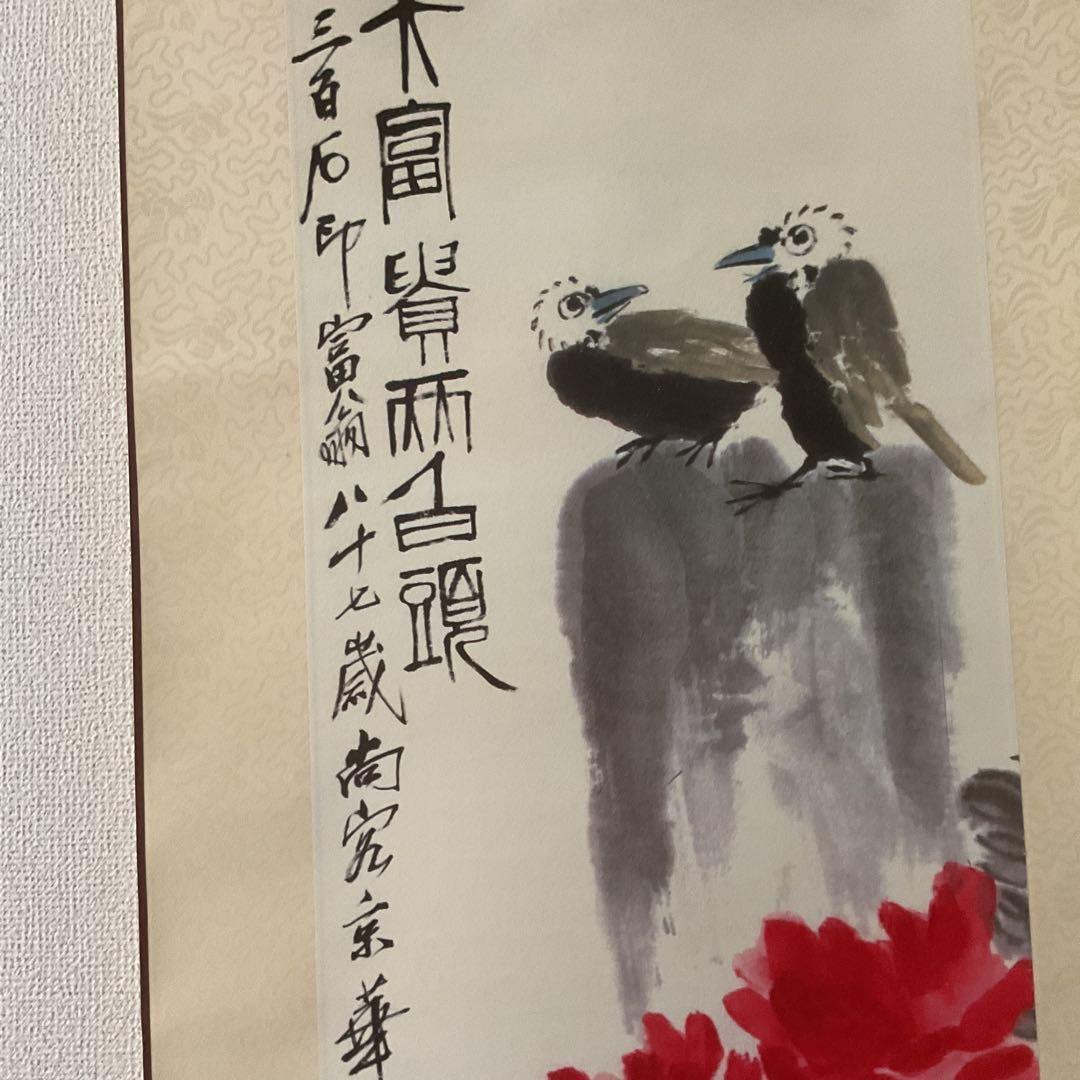 大富貴兩白頭
三百石印富翁八十七歲尚客京華